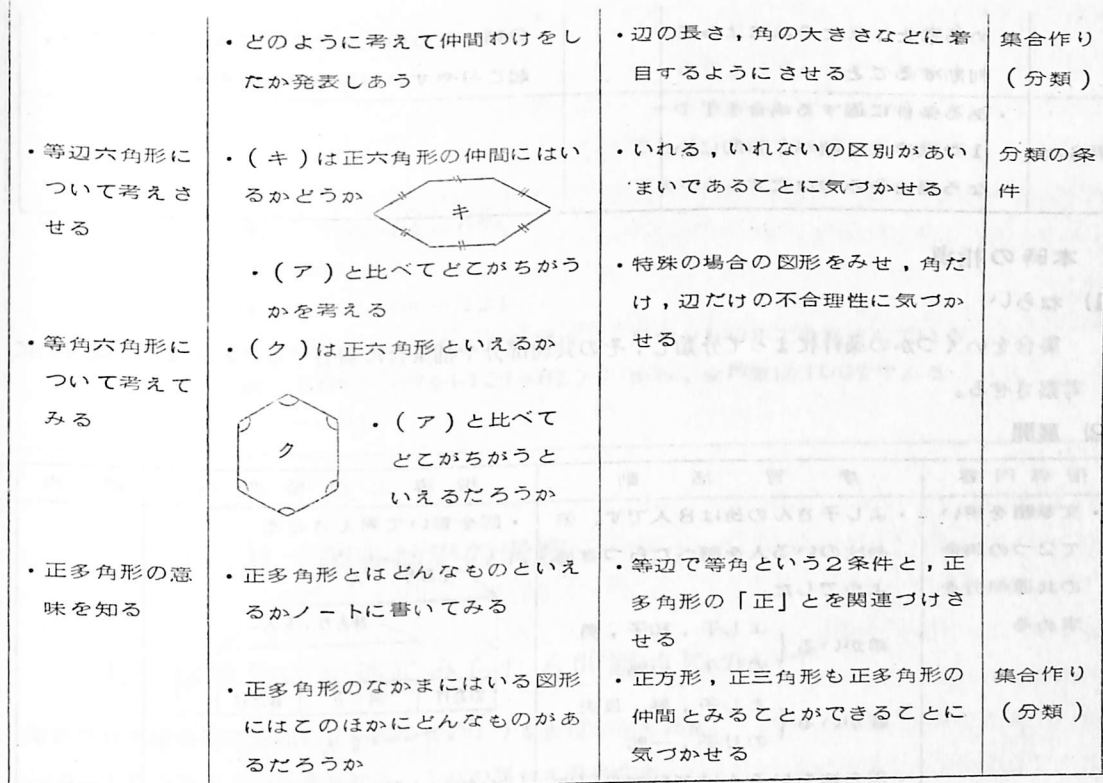 ・どのように考えて仲間わけをし
たか発表しあう
・辺の長さ，角の大きさなどに着
目するようにさせる
集合作り
（分類）
・等辺六角形に
ついて考えさ
せる
・（キ）は正六角形の仲間にはい
るかどうか
キ
・（ア）と比べてどこがちがう
かを考える
・いれる，いれないの区別があい
まいであることに気づかせる
分類の条
件
・特殊の場合の図形をみせ，角だ
け，辺だけの不合理性に気づか
せる
・等角六角形に
ついて考えて
みる
・（ク）は正六角形といえるか
ク
・（ア）と比べて
どこがちがうと
いえるだろうか
・正多角形の意
味を知る
・正多角形とはどんなものといえ
るかノートに書いてみる
・等辺で等角という2条件と，正
多角形の「正」とを関連づけさ
せる
・正多角形のなかまにはいる図形
にはこのほかにどんなものがあ
るだろうか
・正方形，正三角形も正多角形の
仲間とみることができることに
気づかせる
集合作り
（分類）